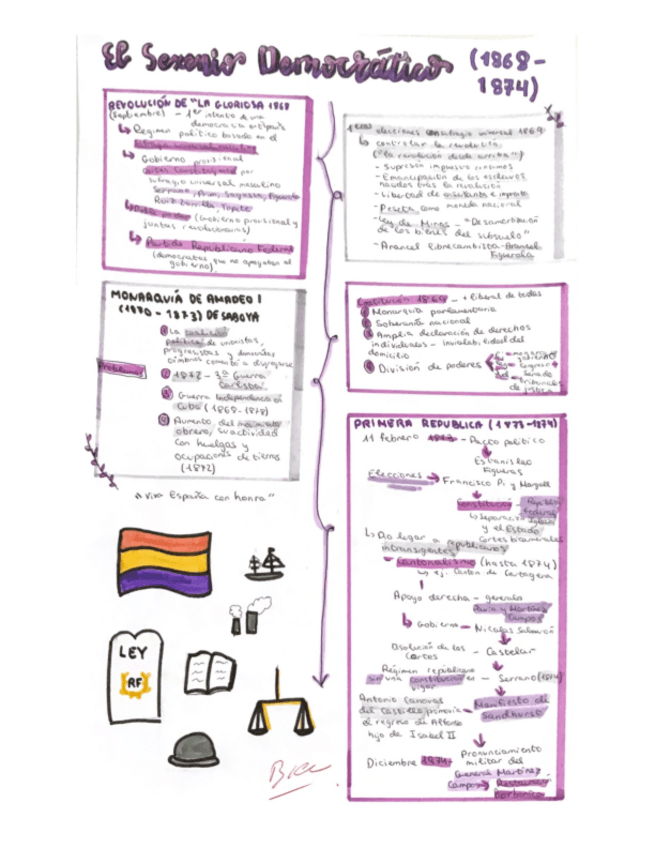 El Sexenio Democrático (1868-
1874)
REVOLUCIÓN DE "LA GLORIOSA 1868
(Septiembre) - 1er intento de una
democracia en España
↳ Régimen político basado en el
sufragio universal masculino
↳ Gobierno provisional
Cortes Constituyentes por
sufragio universal masculino
Serrano, Prim, Sagasta, Figuerola
Ruiz Zorrilla, Topete
(Gobierno provisional y
juntas revolucionarias)
↳ Partido Republicano Federal
(demócratas que no apoyaban al
gobierno).
1eras elecciones con sufragio universal 1869
↳ controlar la revolución
("la revolución desde arriba")
- Supresión impuesto consumos
- Emancipación de los esclavos
nacidos tras la revolución
- Libertad de enseñanza e imprenta
- Peseta como moneda nacional
- Ley de Minas - "Desamortización
de los bienes del subsuelo"
- Arancel librecambista - Arancel
Figuerola
MONARQUÍA DE AMADEO I
(1870 - 1873) DE SABOYA
Problemas
① La coalición
política de unionistas,
progresistas y demócratas
cimbrios comenzó a disgregarse
② 1872 - 3ª Guerra
Carlista
③ Guerra Independencia en
Cuba (1868-1878)
④ Aumento del movimiento
obrero, su actividad
con huelgas y
ocupaciones de tierras
(1872)
"Viva España con honra"
Constitución 1869 - + liberal de todas
① Monarquía parlamentaria
② Soberanía nacional
③ Amplia declaración de derechos
individuales - inviolabilidad del
domicilio
④ División de poderes
tribunales
de justicia
PRIMERA REPÚBLICA (1873-1874)
11 febrero 1873 - Pacto político
Estanislao
Figueras
Elecciones → Francisco Pi y Margall
Constitución - República
Federal
↳ Separación Iglesia
y el Estado
Cortes bicamerales
↳ Dio lugar a republicanos
intransigentes
- Cantonalismo (hasta 1874)
→ ej. Cantón de Cartagena
Apoyo derecha - generales
Pavía y Martínez
Campos
↳ Gobierno - Nicolás Salmerón
Disolución de las
Cortes - Castelar
Régimen republicano
sin una constitución en
vigor - Serrano (1874)
Antonio Cánovas
del Castillo
el regreso de Alfonso
hijo de Isabel II
Manifiesto de
Sandhurst
Diciembre 1874 - Pronunciamiento
militar del
General Martínez
Campos → Restauración
borbónica
LEY
RF